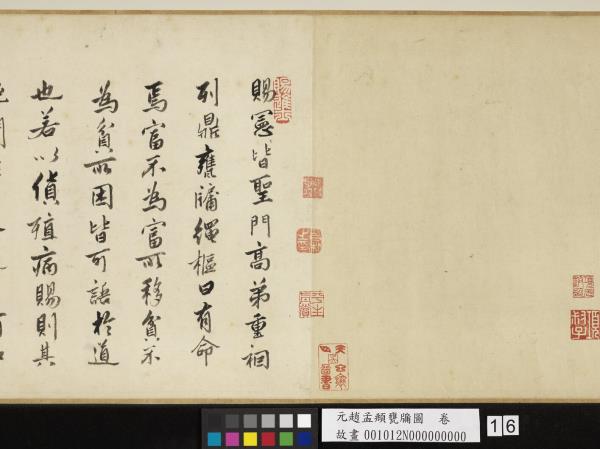 賜憲皆聖門高弟重裀
列鼎甕牖繩樞曰有命
焉富不為富所移貧不
為貧所困皆可語於道
也若以債殖病賜則其
元趙孟頫甕牖圖 卷
故畫 001012N000000000
16